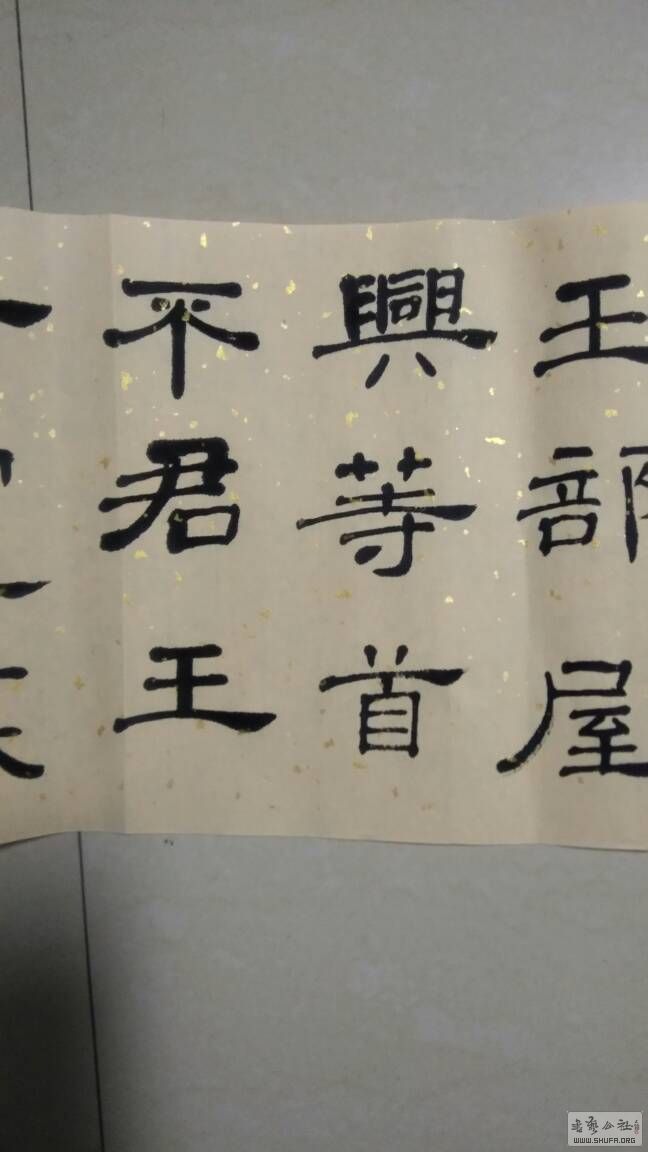 王部屋
興等首
不君王
書藝公社
WWW.SHUFA.ORG